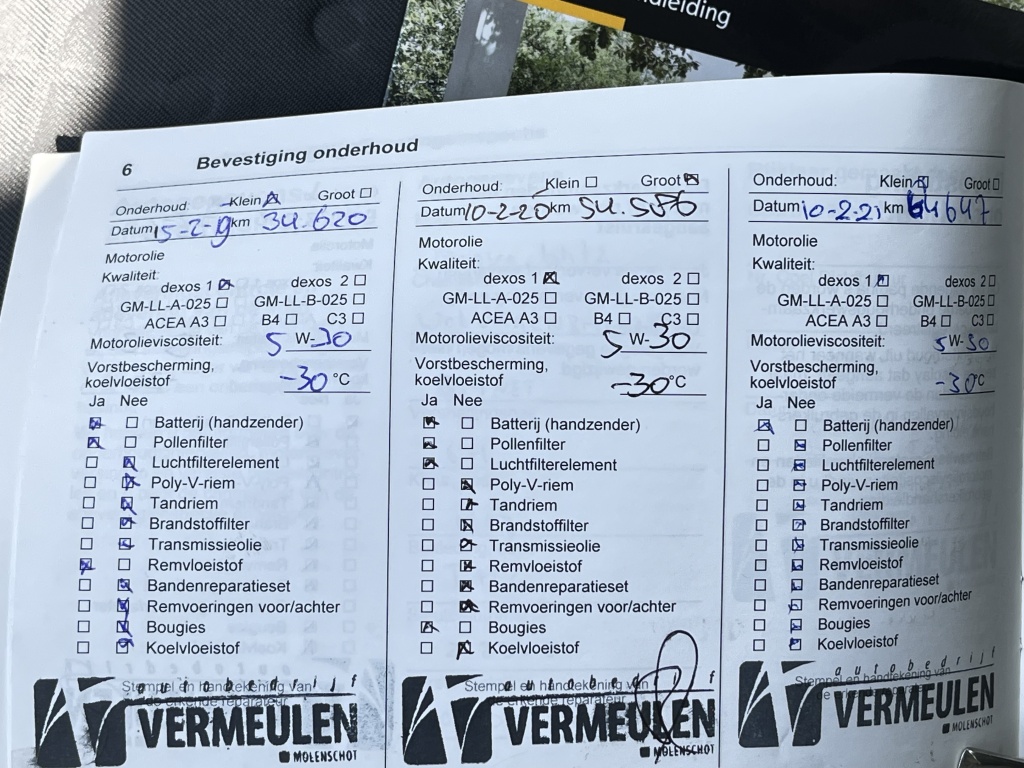 leiding
6 Bevestiging onderhoud
Onderhoud: Klein Groot
Datum 15-2-19 km 34.620
Motorolie
Kwaliteit:
dexos 1 dexos 2
GM-LL-A-025 GM-LL-B-025
ACEA A3 B4 C3
Motorolieviscositeit: 5 W-30
Vorstbescherming,
koelvloeistof -30 °C
Ja Nee
Batterij (handzender)
Pollenfilter
Luchtfilterelement
Poly-V-riem
Tandriem
Brandstoffilter
Transmissieolie
Remvloeistof
Bandenreparatieset
Remvoeringen voor/achter
Bougies
Koelvloeistof
Stempel en handtekening van
de erkende reparateur
autobedrijf
VERMEULEN
MOLENSCHOT
Onderhoud: Klein Groot
Datum 10-2-20 km 54.586
Motorolie
Kwaliteit:
dexos 1 dexos 2
GM-LL-A-025 GM-LL-B-025
ACEA A3 B4 C3
Motorolieviscositeit: 5 W-30
Vorstbescherming,
koelvloeistof -30 °C
Ja Nee
Batterij (handzender)
Pollenfilter
Luchtfilterelement
Poly-V-riem
Tandriem
Brandstoffilter
Transmissieolie
Remvloeistof
Bandenreparatieset
Remvoeringen voor/achter
Bougies
Koelvloeistof
Stempel en handtekening van
de erkende reparateur
autobedrijf
VERMEULEN
MOLENSCHOT
Onderhoud: Klein Groot
Datum 10-2-21 km 64647
Motorolie
Kwaliteit:
dexos 1 dexos 2
GM-LL-A-025 GM-LL-B-025
ACEA A3 B4 C3
Motorolieviscositeit: 5 W-30
Vorstbescherming,
koelvloeistof -30 °C
Ja Nee
Batterij (handzender)
Pollenfilter
Luchtfilterelement
Poly-V-riem
Tandriem
Brandstoffilter
Transmissieolie
Remvloeistof
Bandenreparatieset
Remvoeringen voor/achter
Bougies
Koelvloeistof
Stempel en handtekening van
de erkende
autobedrijf
VERMEULEN
MOLENSCHOT